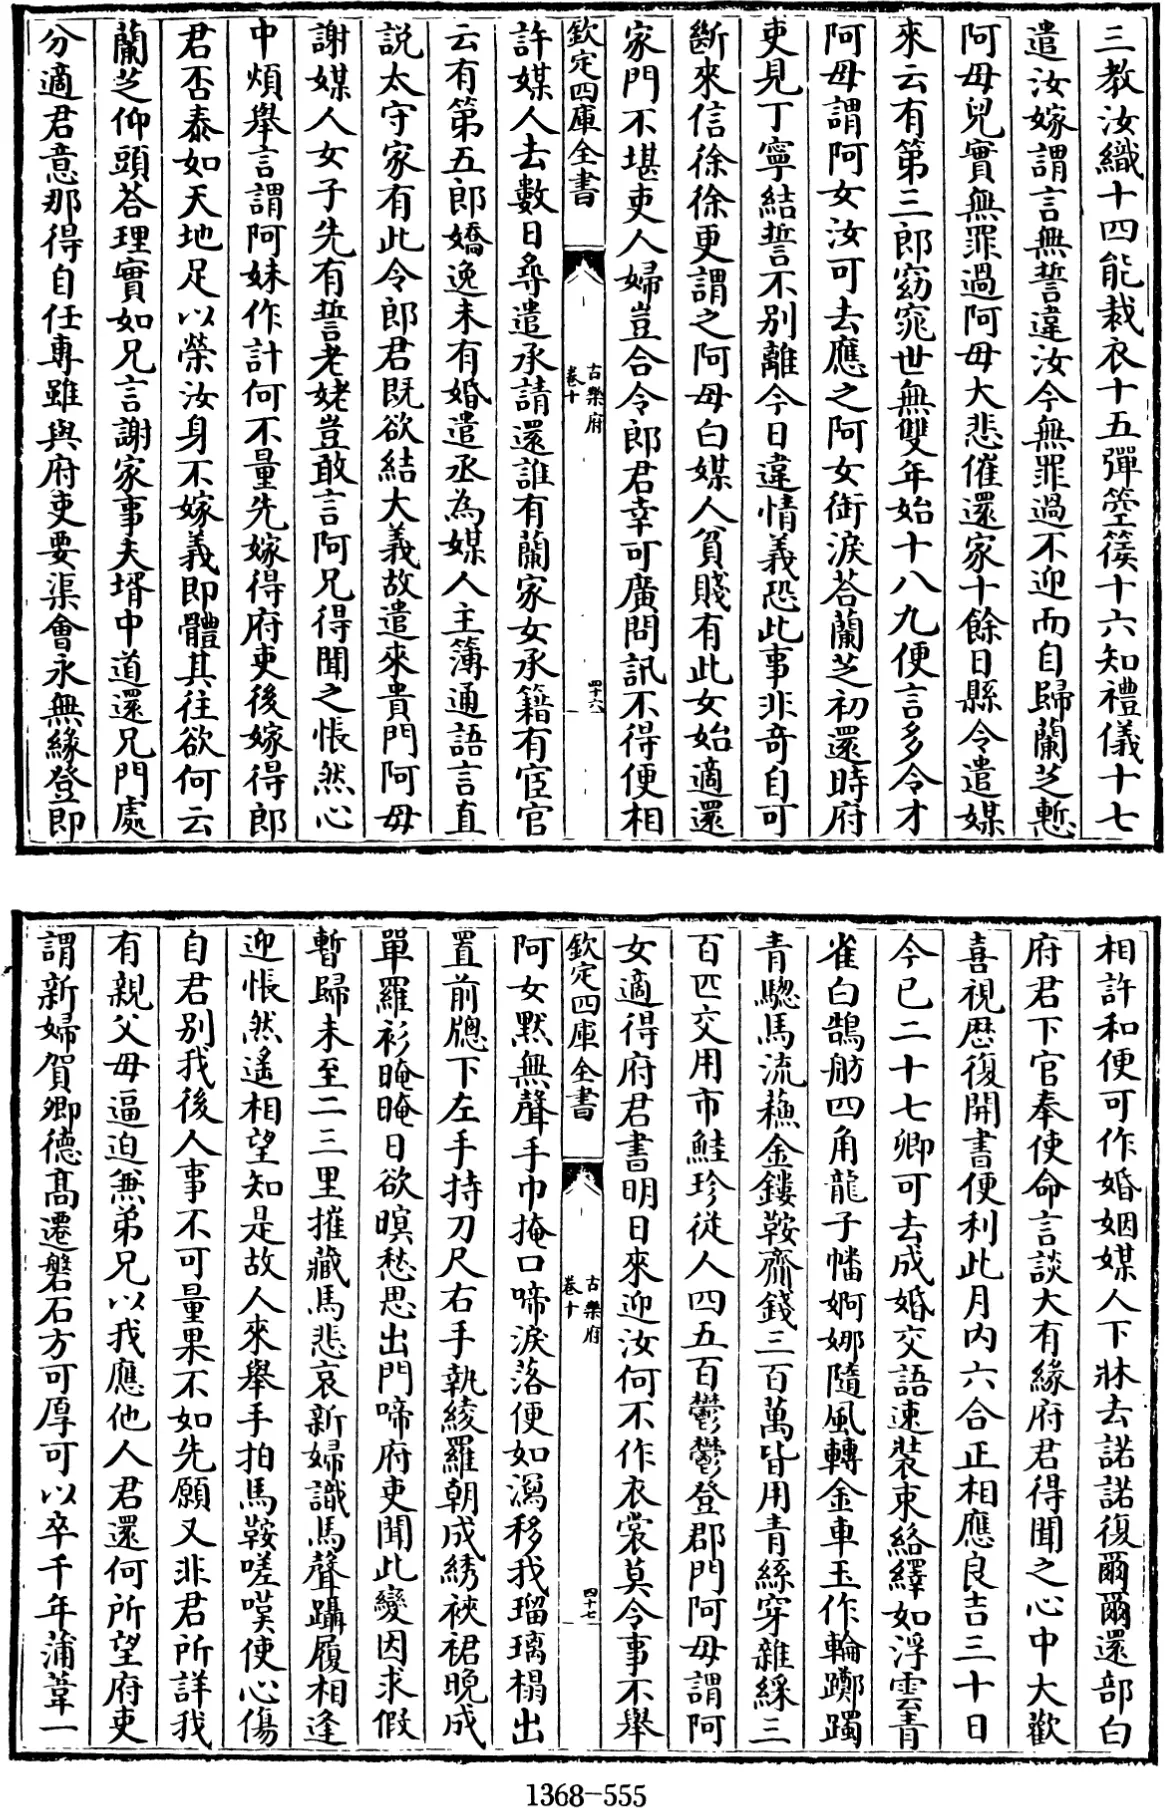 三教汝織十四能裁衣十五彈箜篌十六知禮儀十七
遣汝嫁謂言無誓違汝今無罪過不迎而自歸蘭芝慙
阿母兒實無罪過阿母大悲催還家十餘日縣令遣媒
來云有第三郎窈窕世無雙年始十八九便言多令才
阿母謂阿女汝可去應之阿女銜淚荅蘭芝初還時府
吏見丁寧結誓不別離今日違情義恐此事非奇自可
斷來信徐徐更謂之阿母白媒人貧賤有此女始適還
家門不堪吏人婦豈合令郎君幸可廣問訊不得便相
欽定四庫全書
古樂府
卷十
四十六
許媒人去數日尋遣丞請還誰有蘭家女承籍有宦官
云有第五郎嬌逸未有婚遣丞為媒人主簿通語言直
説太守家有此令郎君既欲結大義故遣來貴門阿母
謝媒人女子先有誓老姥豈敢言阿兄得聞之悵然心
中煩舉言謂阿妹作計何不量先嫁得府吏後嫁得郎
君否泰如天地足以榮汝身不嫁義即體其往欲何云
蘭芝仰頭荅理實如兄言謝家事夫壻中道還兄門處
分適君意那得自任專雖與府吏要渠會永無緣登即
相許和便可作婚姻媒人下牀去諾諾復爾爾還部白
府君下官奉使命言談大有緣府君得聞之心中大歡
喜視歴復開書便利此月内六合正相應良吉三十日
今已二十七卿可去成婚交語速裝束絡繹如浮雲青
雀白鵠舫四角龍子幡婀娜隨風轉金車玉作輪躑躅
青驄馬流蘇金鏤鞍齎錢三百萬皆用青絲穿雜綵三
百匹交用市鮭珍從人四五百鬱鬱登郡門阿母謂阿
女適得府君書明日來迎汝何不作衣裳莫令事不舉
欽定四庫全書
古樂府
卷十
四十七
阿女黙無聲手巾掩口啼淚落便如瀉移我瑠璃榻出
置前牕下左手持刀尺右手執綾羅朝成綉裌裙晚成
單羅衫晻晻日欲暝愁思出門啼府吏聞此變因求假
暫歸未至二三里摧藏馬悲哀新婦識馬聲躡履相逢
迎悵然遥相望知是故人來舉手拍馬鞍嗟嘆使心傷
自君別我後人事不可量果不如先願又非君所詳我
有親父母逼迫兼弟兄以我應他人君還何所望府吏
謂新婦賀卿德髙遷磐石方可厚可以卒千年蒲葦一
1368-555